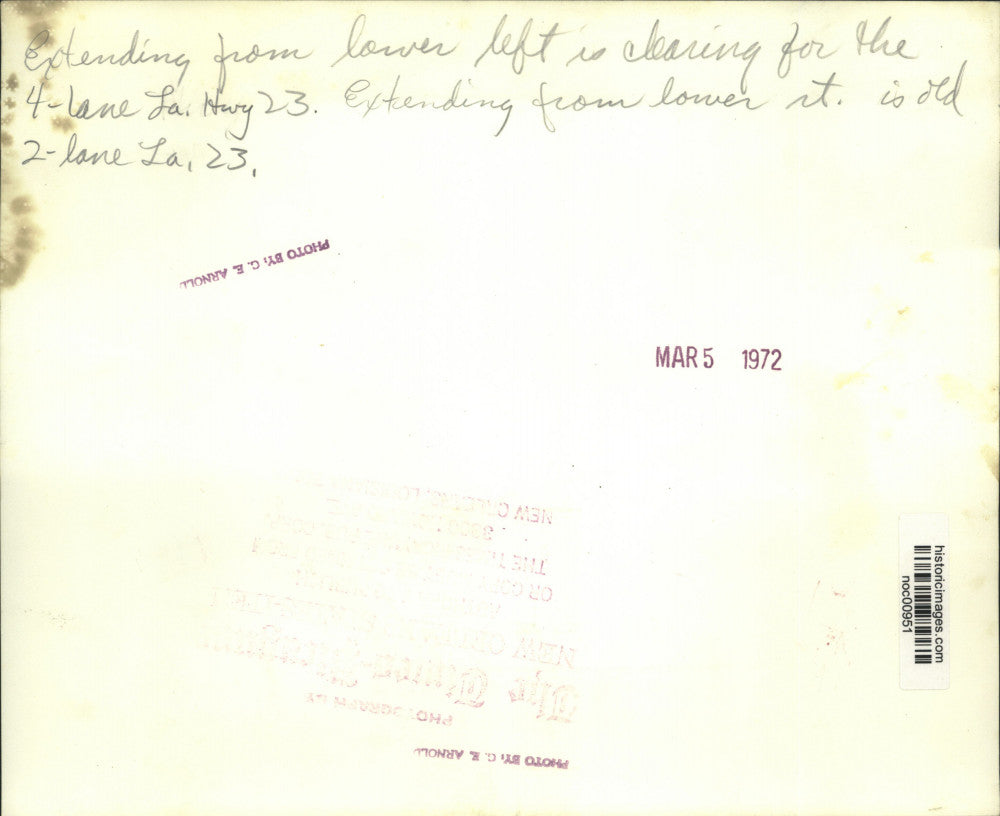 Extending from lower left is clearing for the
4-lane La. Hwy 23. Extending from lower rt. is old
2-lane La. 23.
PHOTO BY: G. E. ARNOLD
MAR 5 1972
NEW
3800
THE
OR
NEW
The Times-
PHOTOGRAPH BY
PHOTO BY: G. E. ARNOLD
historicimages.com
noc00951